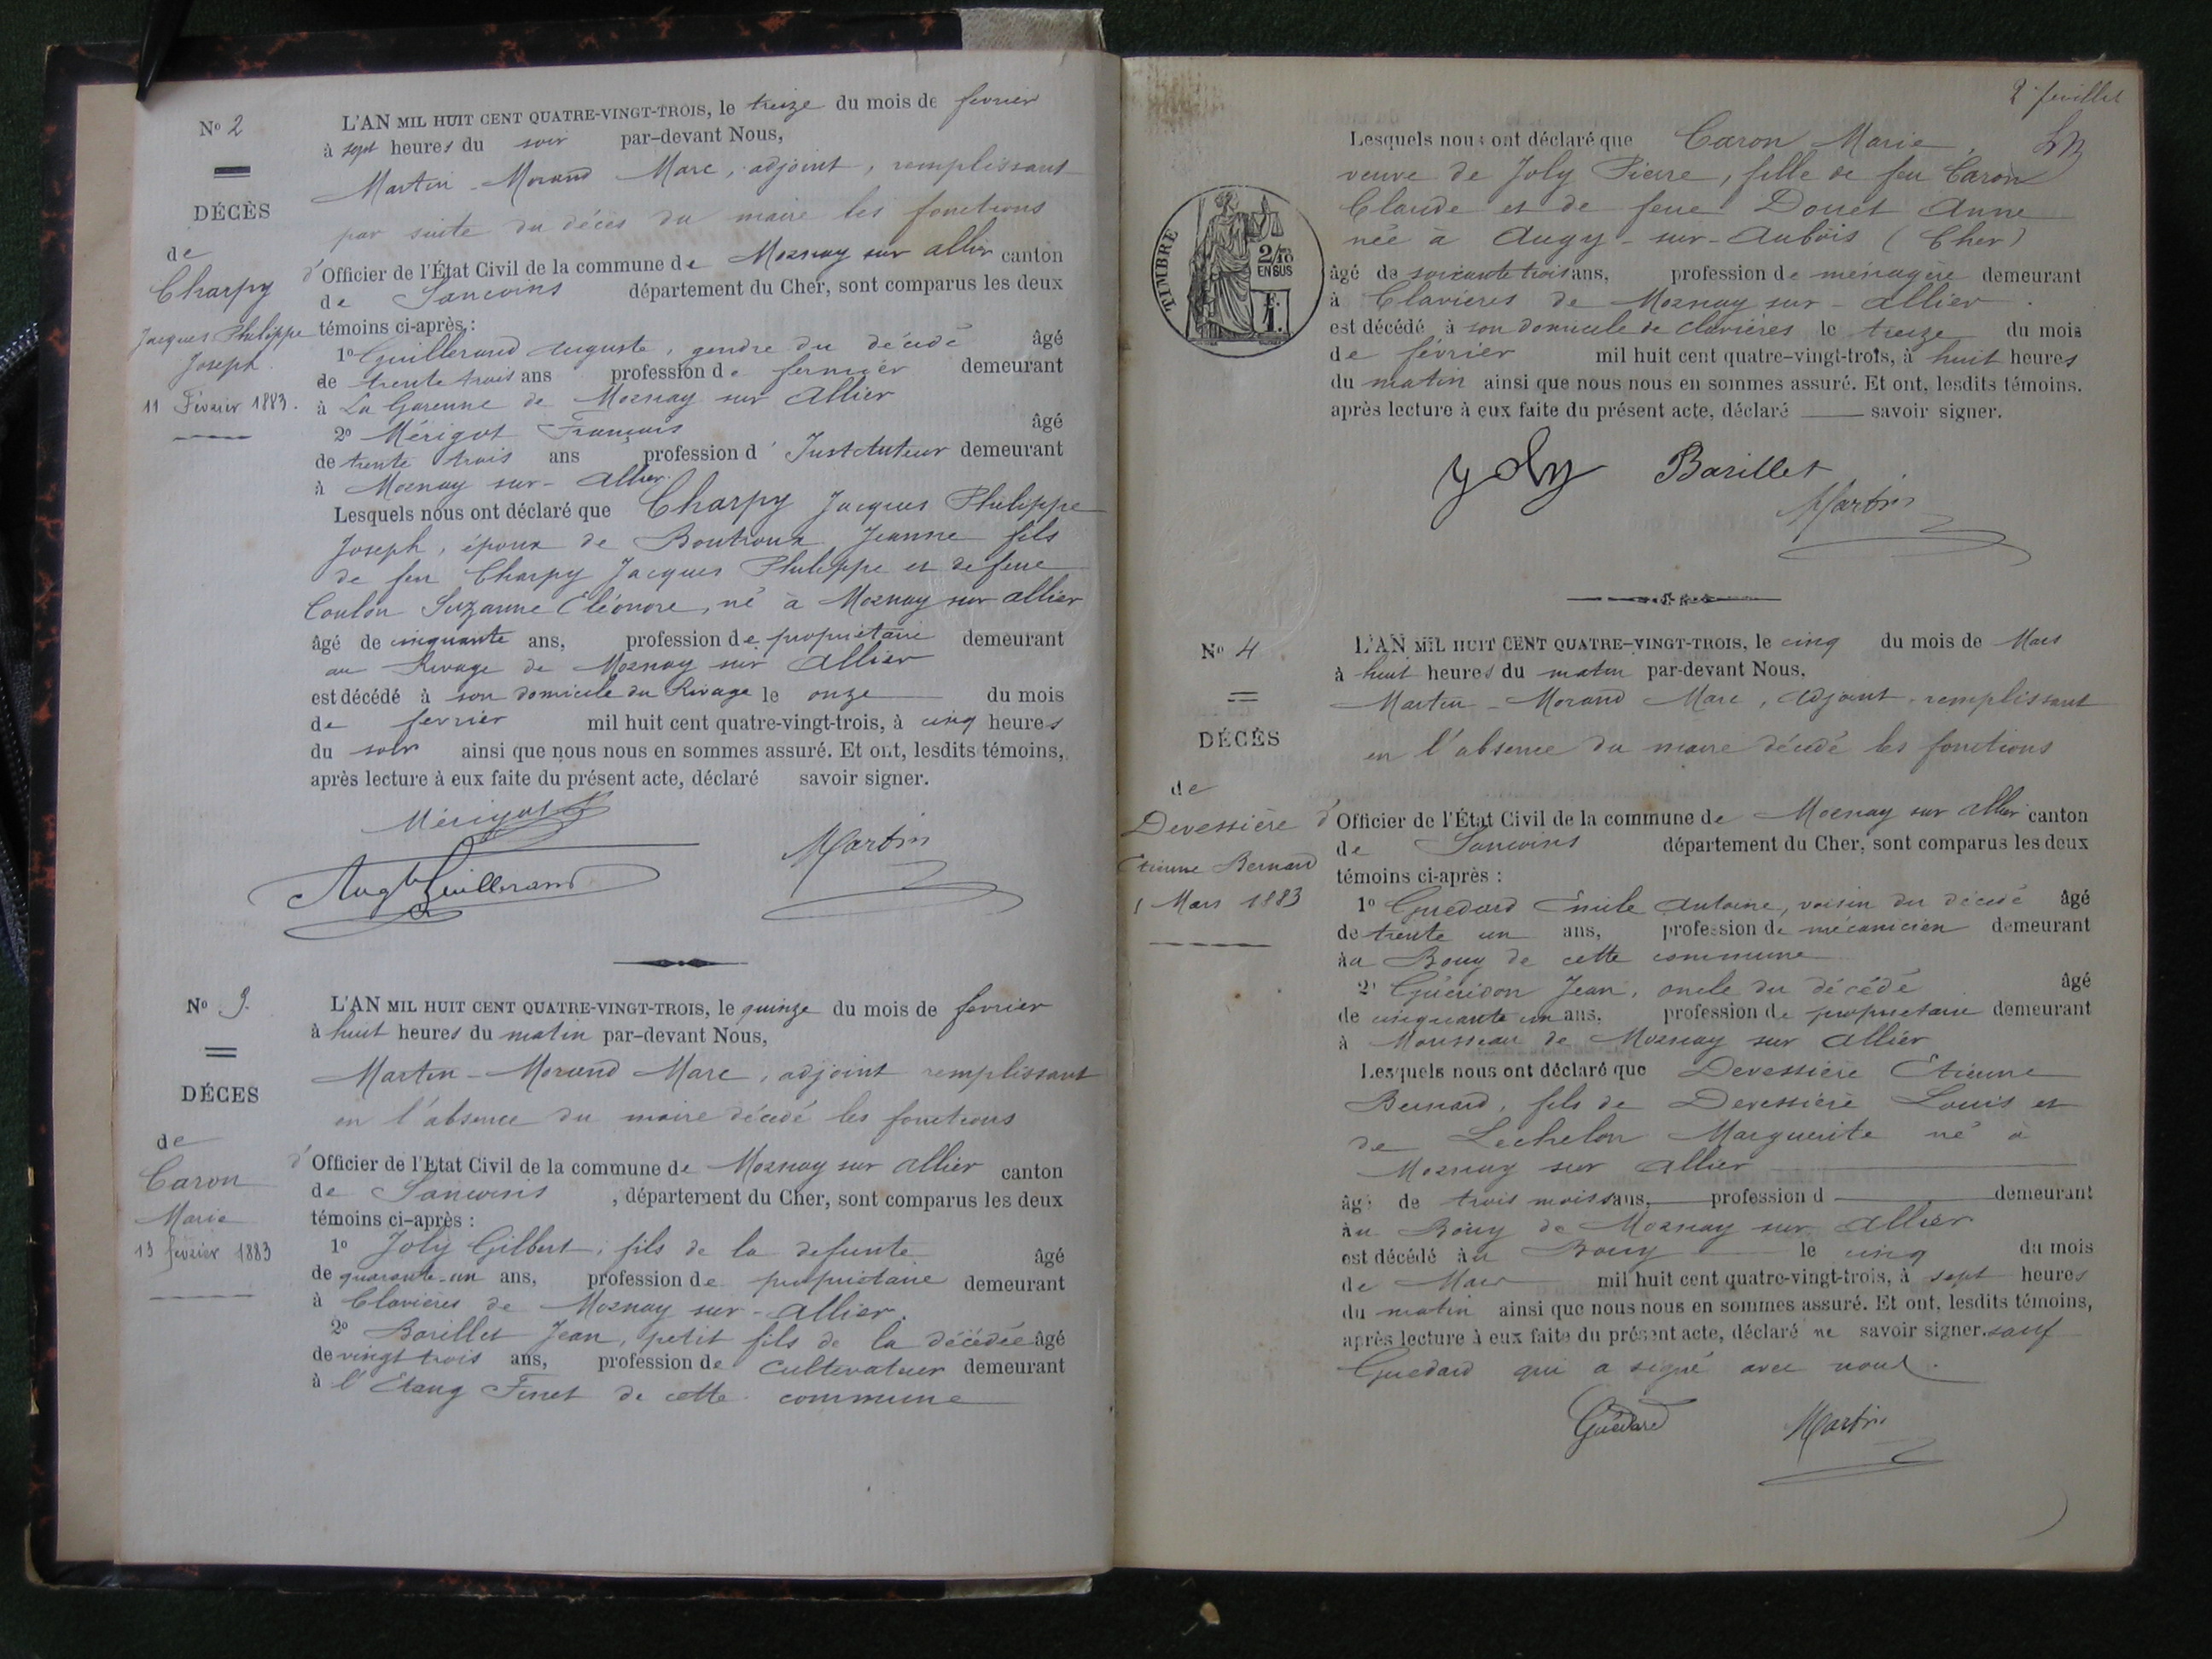 No 2
DÉCÈS
de
Charpy
Jacques Philippe
Joseph.
11 Février 1883.
L'AN MIL HUIT CENT QUATRE-VINGT-TROIS, le treize du mois de fevrier
à sept heures du soir par-devant Nous,
Martin-Morand Marc, adjoint, remplissant
par suite du décès du maire les fonctions
d'Officier de l'État Civil de la commune de Mornay sur Allier canton
de Sancoins département du Cher, sont comparus les deux
témoins ci-après :
1o Guillerand Auguste, gendre du décédé âgé
de trente trois ans profession de fermier demeurant
à La Garenne de Mornay sur Allier
2o Mérigot François âgé
de trente trois ans profession d'Instituteur demeurant
à Mornay sur-Allier.
Lesquels nous ont déclaré que Charpy Jacques Philippe
Joseph, époux de Boutroux Jeanne fils
de feu Charpy Jacques Philippe et de feue
Coulon Suzanne Eléonore, né à Mornay sur Allier
âgé de cinquante ans, profession de propriétaire demeurant
au Rivage de Mornay sur Allier
est décédé à son domicile du Rivage le onze du mois
de fevrier mil huit cent quatre-vingt-trois, à cinq heures
du soir ainsi que nous nous en sommes assuré. Et ont, lesdits témoins,
après lecture à eux faite du présent acte, déclaré savoir signer.
Mérigot
Martin
Augte Guillerand
No 3.
DÉCES
de
Caron
Marie
13 février 1883
L'AN MIL HUIT CENT QUATRE-VINGT-TROIS, le quinze du mois de fevrier
à huit heures du matin par-devant Nous,
Martin-Morand Marc, adjoint remplissant
en l'absence du maire décédé les fonctions
d'Officier de l'Etat Civil de la commune de Mornay sur Allier canton
de Sancoins, département du Cher, sont comparus les deux
témoins ci-après :
1o Joly Gilbert, fils de la defunte âgé
de quarante-un ans, profession de propriétaire demeurant
à Clavières de Mornay sur-Allier.
2o Barillet Jean, petit fils de la décédée âgé
de vingt trois ans, profession de cultivateur demeurant
à l'Etang Finet de cette commune
2e feuillet
Lesquels nous ont déclaré que Caron Marie,
veuve de Joly Pierre, fille de feu Caron
Claude et de feue Douet Anne
née à Augy-sur-Aubois (Cher)
TIMBRE
2/10
EN SUS
1 F.
âgé de soixante trois ans, profession de ménagère demeurant
à Clavières de Mornay sur-Allier.
est décédé à son domicile de Clavières le treize du mois
de février mil huit cent quatre-vingt-trois, à huit heures
du matin ainsi que nous nous en sommes assuré. Et ont, lesdits témoins.
après lecture à eux faite du présent acte, déclaré savoir signer.
Joly Barillet
Martin
No 4
DÉCÈS
de
Devessière
Etienne Bernard
Mars 1883
L'AN MIL HUIT CENT QUATRE-VINGT-TROIS, le cinq du mois de Mars
à huit heures du matin par-devant Nous,
Martin-Morand Marc, adjoint, remplissant
en l'absence du maire décédé les fonctions
d'Officier de l'État Civil de la commune de Mornay sur Allier canton
de Sancoins département du Cher, sont comparus les deux
témoins ci-après :
1o Guedard Emile Antoine, voisin du décédé âgé
de trente un ans, profession de mécanicien demeurant
au Bouy de cette commune
2o Guéridon Jean, oncle du décédé âgé
de cinquante un ans, profession de proprietaire demeurant
à Mousseau de Mornay sur Allier
Lesquels nous ont déclaré que Devessière Etienne
Bernard, fils de Devessière Louis et
de Lechelon Marguerite né à
Mornay sur Allier
âgé de trois mois ans, profession d demeurant
au Bouy de Mornay sur Allier
est décédé au Bouy le cinq du mois
de Mars mil huit cent quatre-vingt-trois, à sept heures
du matin ainsi que nous nous en sommes assuré. Et ont, lesdits témoins,
après lecture à eux faite du présent acte, déclaré ne savoir signer. sauf
Guedard qui a signé avec nous.
Guédard Martin